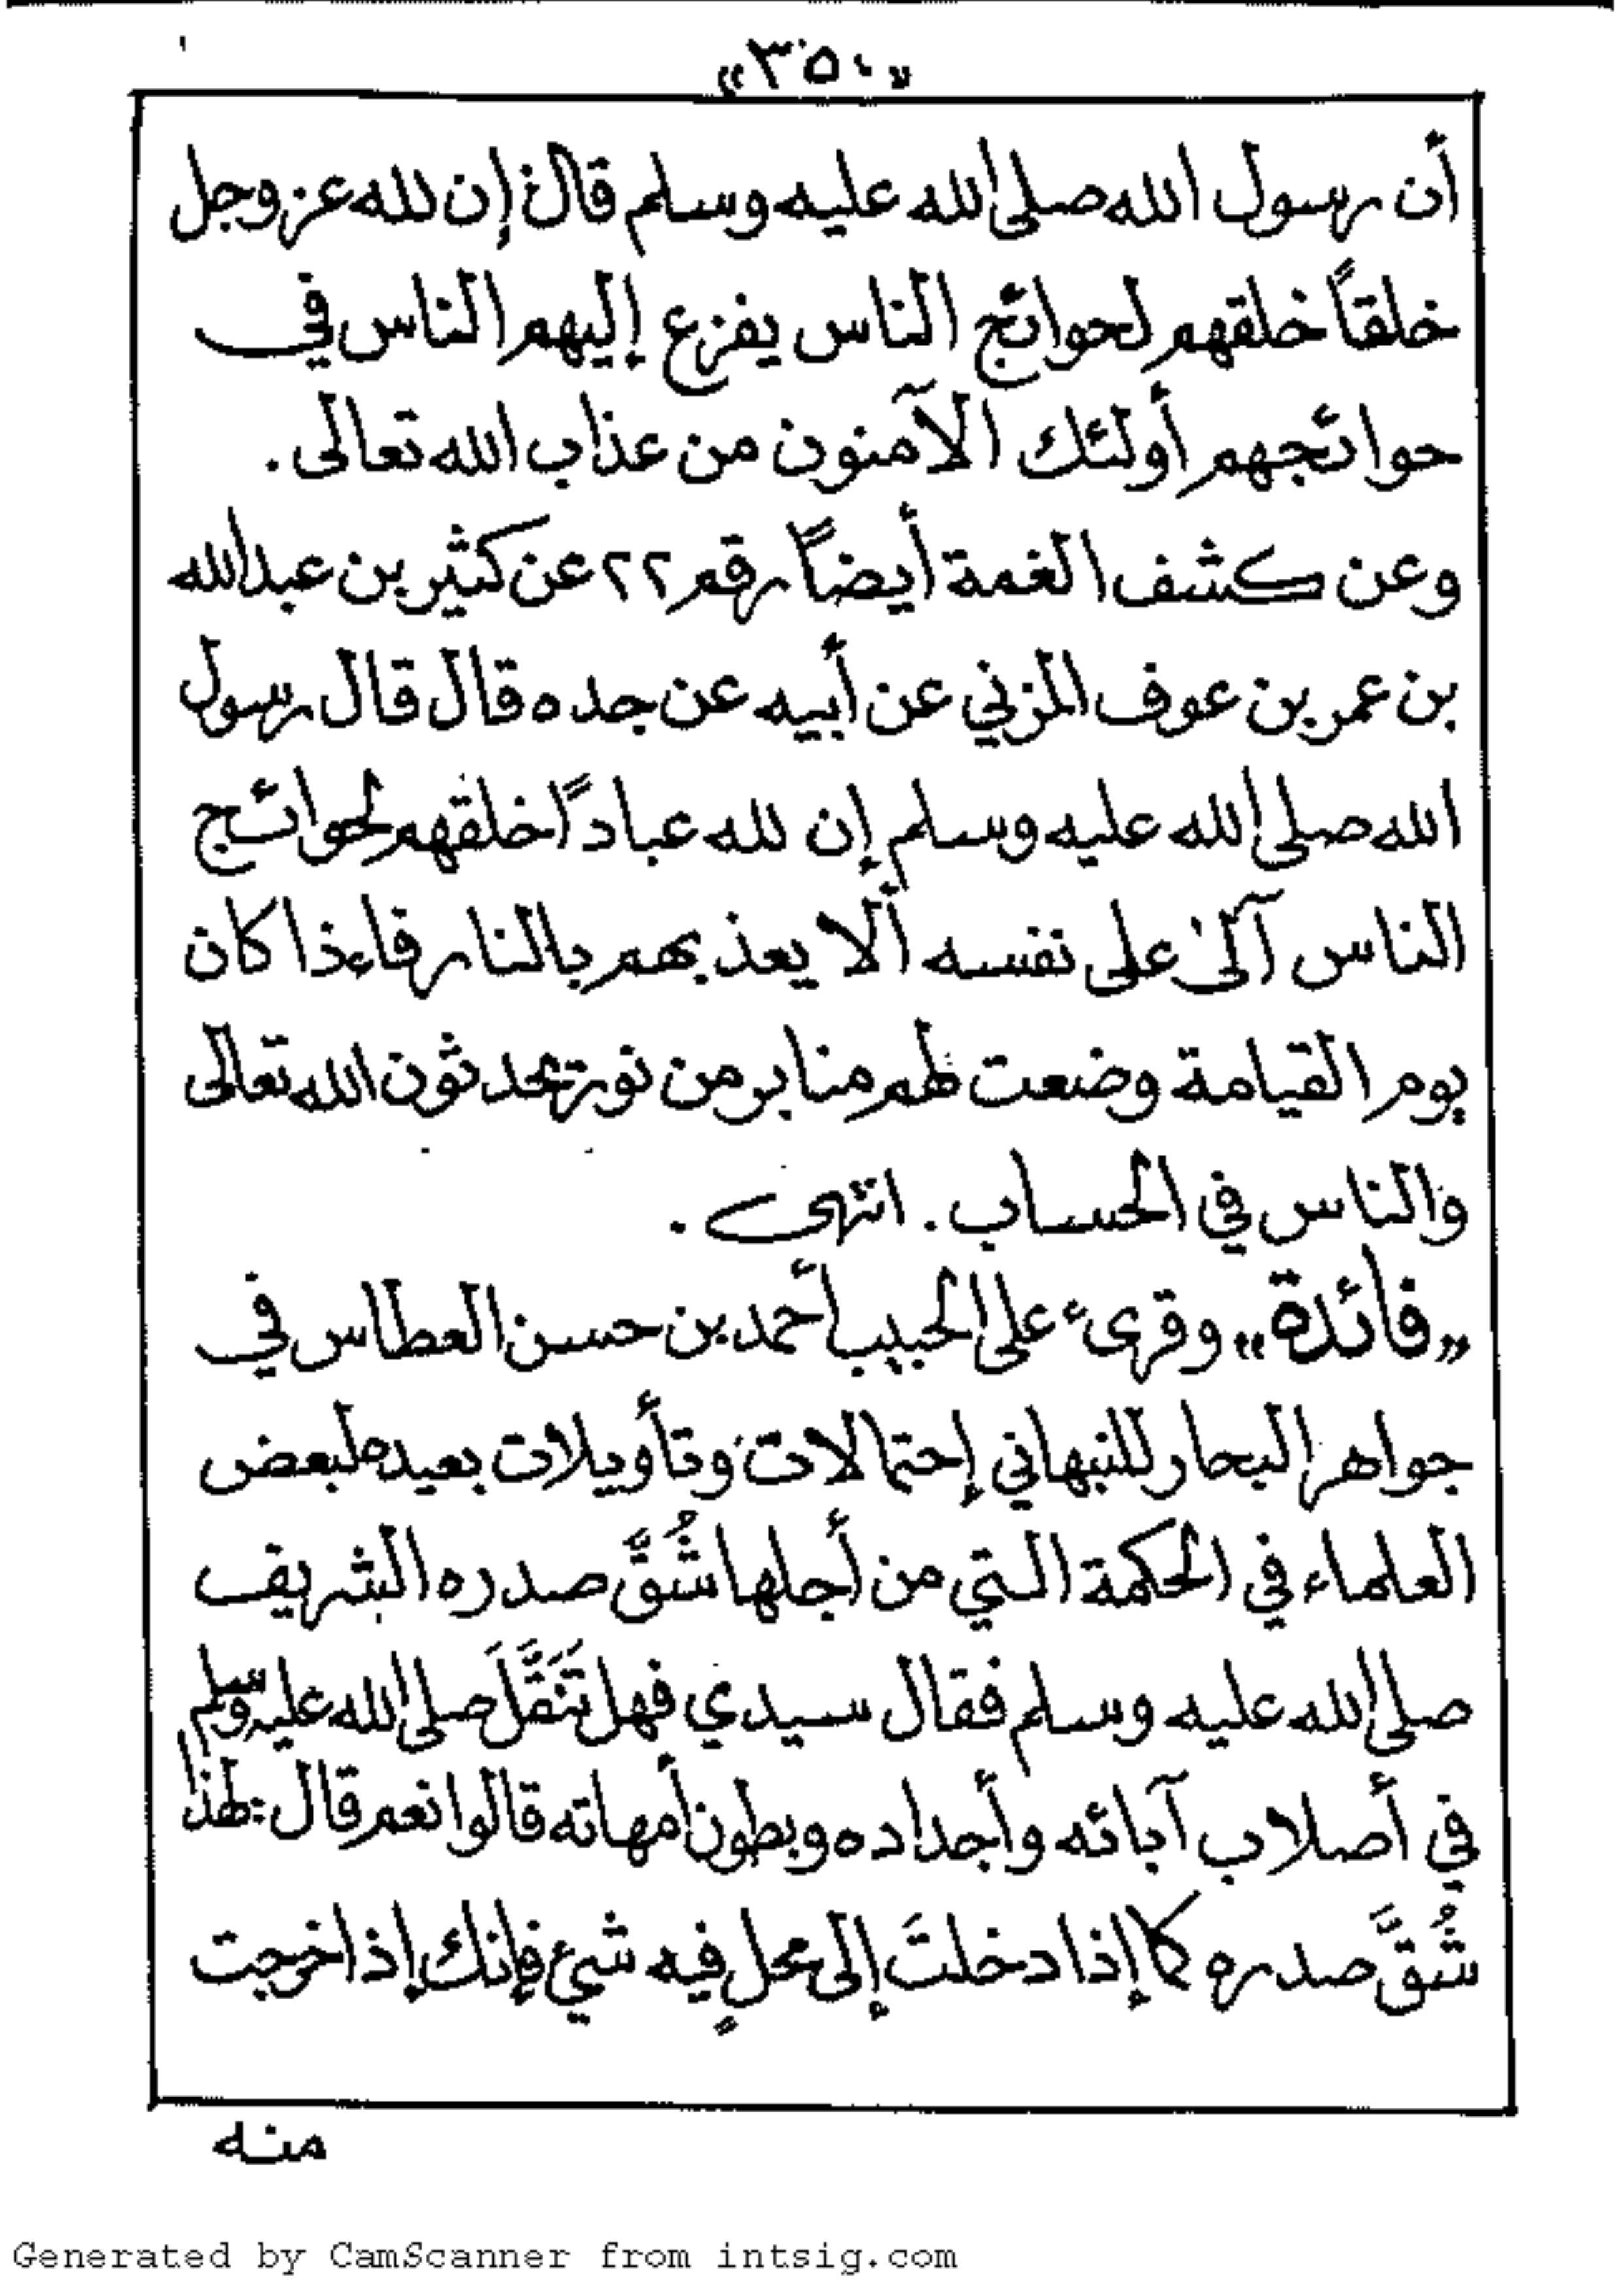 «٣٥٠»
أن رسول الله صلى الله عليه وسلم قال: إن لله عز وجل
خلقاً خلقهم لحوائج الناس يفزع إليهم الناس في
حوائجهم أولئك الآمنون من عذاب الله تعالى .
وعن كشف الغمة أيضاً رقم ٢٢ عن كثير بن عبدالله
بن عمر بن عوف المزني عن أبيه عن جده قال قال رسول
الله صلى الله عليه وسلم إن لله عباداً خلقهم لحوائج
الناس آلى على نفسه ألا يعذبهم بالنار فإذا كان
يوم القيامة وضعت لهم منابر من نور يحدثون الله تعالى
والناس في الحساب . انتهى .
«فائدة» وقرىء على الحبيب أحمد بن حسن العطاس في
جواهر البحار للنبهاني إحتمالات وتأويلات بعيدة لبعض
العلماء في الحكمة التي من أجلها شُقَّ صدره الشريف
صلى الله عليه وسلم فقال سيدي فهل تَنَقَّلَ صلى الله عليه وسلم
في أصلاب آبائه وأجداده وبطون أمهاته قالوا نعم قال: لهذا
شُقَّ صدره كما إذا دخلتَ إلى محلٍ فيه شيء فإنك إذا خرجت
منه
Generated by CamScanner from intsig.com